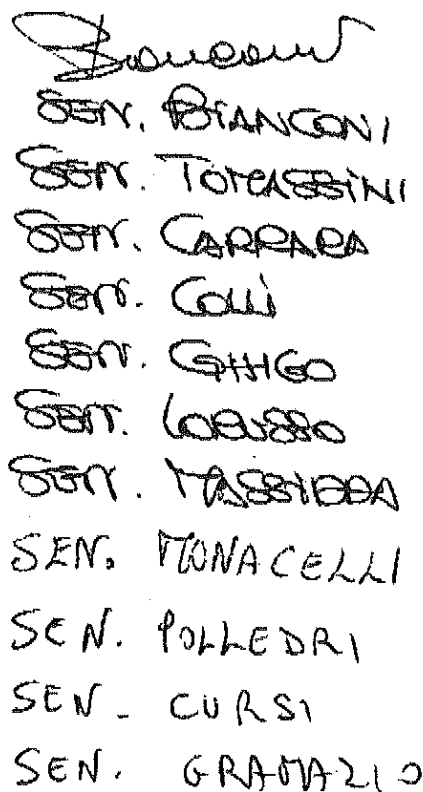 Bianconi
SEN. BIANCONI
SEN. TOMASSINI
SEN. CARRARA
SEN. COLLI
SEN. GHIGO
SEN. LORUSSO
SEN. MASSIDDA
SEN. MONACELLI
SEN. POLLEDRI
SEN. CURSI
SEN. GRAMAZIO